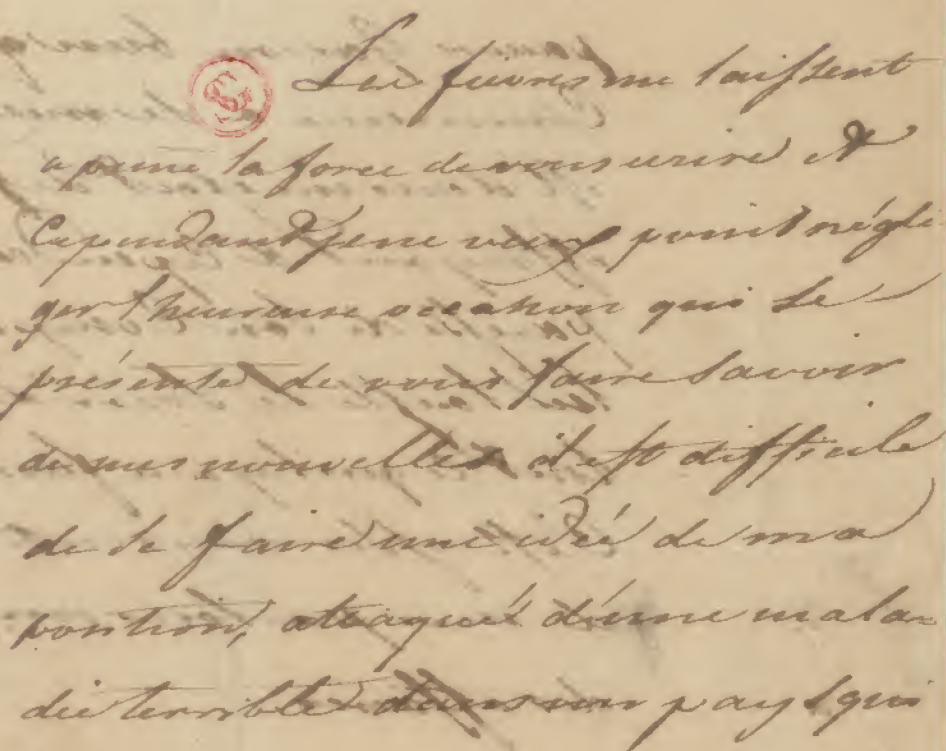 SG
Les fievres me laissent
a peine la force de vous ecrire et
Cependant je ne veux point négli
ger l'heureuse occasion qui se
présente de vous faire savoir
de mes nouvelles il est difficile
de se faire une idée de ma
position, attaqué d'une mala=
die terrible dans un pays qui